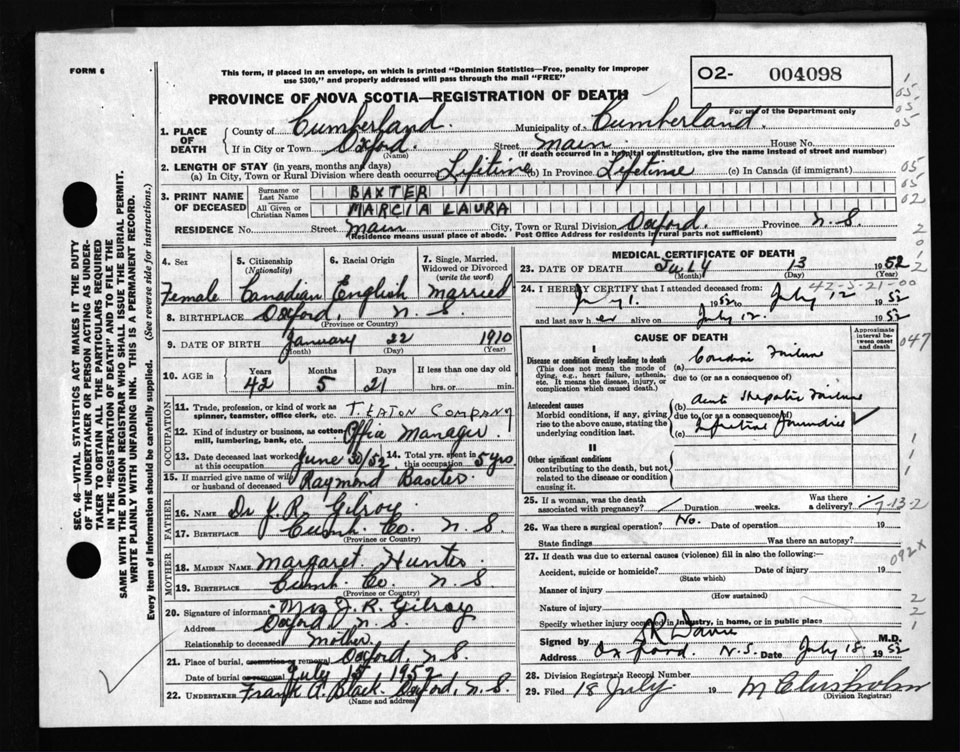 FORM 6
This form, if placed in an envelope, on which is printed "Dominion Statistics—Free, penalty for improper
use $300," and properly addressed will pass through the mail "FREE"
O2- 004098
For use of the Department only
PROVINCE OF NOVA SCOTIA—REGISTRATION OF DEATH
1. PLACE OF DEATH County of Cumberland. Municipality of Cumberland.
If in City or Town Oxford. (Name) Street Main House No.
(If death occurred in a hospital or institution, give the name instead of street and number)
2. LENGTH OF STAY (in years, months and days)
(a) In City, Town or Rural Division where death occurred Lifetime (b) In Province Lifetime (c) In Canada (if immigrant)
3. PRINT NAME OF DECEASED Surname or Last Name BAXTER
All Given or Christian Names MARCIA LAURA
RESIDENCE No. Street Main City, Town or Rural Division Oxford. Province N.S.
(Residence means usual place of abode. Post Office Address for residents in rural parts not sufficient)
SEC. 46—VITAL STATISTICS ACT MAKES IT THE DUTY
OF THE UNDERTAKER OR PERSON ACTING AS UNDER-
TAKER TO OBTAIN ALL THE PARTICULARS REQUIRED
IN THE "REGISTRATION OF DEATH" AND TO FILE THE
SAME WITH THE DIVISION REGISTRAR WHO SHALL ISSUE THE BURIAL PERMIT.
WRITE PLAINLY WITH UNFADING INK. THIS IS A PERMANENT RECORD.
Every item of Information should be carefully supplied. (See reverse side for instructions.)
4. Sex 5. Citizenship (Nationality) 6. Racial Origin 7. Single, Married, Widowed or Divorced (write the word)
Female Canadian English Married
8. BIRTHPLACE Oxford, N.S.
(Province or Country)
9. DATE OF BIRTH January 22 1910
(Month) (Day) (Year)
10. AGE in Years Months Days If less than one day
42 5 21 hrs. or min.
OCCUPATION
11. Trade, profession, or kind of work as spinner, teamster, office clerk, etc. T. EATON COMPANY
12. Kind of industry or business, as cotton mill, lumbering, bank, etc. Office Manager
13. Date deceased last worked at this occupation June 30/52 14. Total yrs. spent in this occupation 5 yrs.
15. If married give name of wife or husband of deceased Raymond Baxter
FATHER
16. Name Dr J. R. Gilroy
17. Birthplace Cumb. Co. N.S
(Province or Country)
MOTHER
18. Maiden Name Margaret Hunter
19. Birthplace Cumb. Co. N.S
(Province or Country)
20. Signature of informant Mrs J. R. Gilroy
Address Oxford N.S.
Relationship to deceased Mother
21. Place of burial, cremation or removal Oxford, N.S.
Date of burial or removal July 1952
22. UNDERTAKER Frank A. Black. Oxford, N.S.
(Name and address)
MEDICAL CERTIFICATE OF DEATH
23. DATE OF DEATH July 13 1952
(Month) (Day) (Year)
24. I HEREBY CERTIFY that I attended deceased from:
July 1. 1952 to July 12 1952
and last saw her alive on July 12. 1952
42-5-21-00
CAUSE OF DEATH
Approximate interval between onset and death
Disease or condition directly leading to death
(This does not mean the mode of dying, e.g., heart failure, asthenia, etc. It means the disease, injury, or complication which caused death.)
(a) Cardiac Failure
due to (or as a consequence of)
Antecedent causes
Morbid conditions, if any, giving rise to the above cause, stating the underlying condition last.
(b) Acute Hepatic Failure
due to (or as a consequence of)
(c) Infectious Jaundice
II
Other significant conditions
contributing to the death, but not related to the disease or condition causing it.
25. If a woman, was the death associated with pregnancy? Duration weeks. Was there a delivery?
26. Was there surgical operation? No. Date of operation 19
State findings Was there an autopsy?
27. If death was due to external causes (violence) fill in also the following:
Accident, suicide or homicide? Date of injury 19
(State which)
Manner of injury
(How sustained)
Nature of injury
Specify whether injury occurred in industry, in home, or in public place
Signed by M.D.
Address Oxford. N.S. Date July 18 1952
28. Division Registrar's Record Number
29. Filed 18 July 19 M Chisholm
(Division Registrar)
047
092X